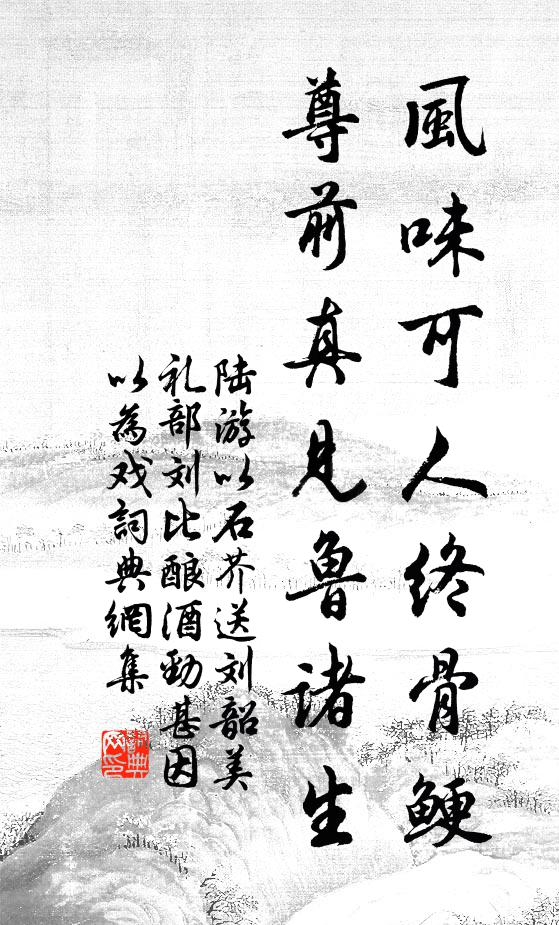 風味可人终骨鲠
尊前真見魯诸生
陆游以石芥送刘韶美
礼部刘比酿酒勁甚因
以為戏詞典網集